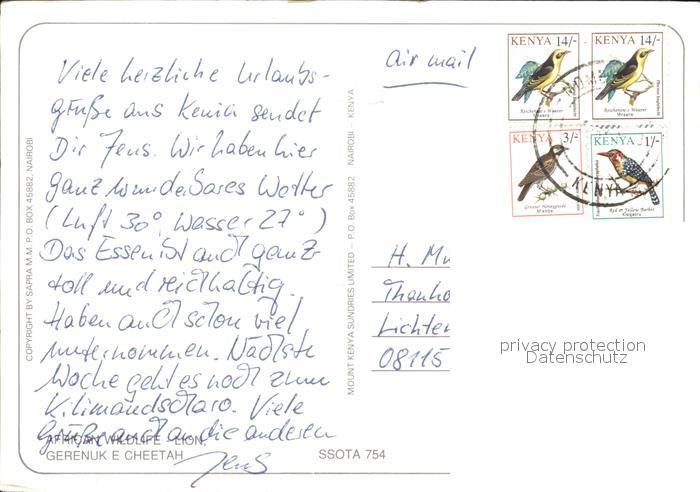 Viele herzliche Urlaubs-
grüße aus Kenia sendet
Dir Jens. Wir haben hier
ganz wunderbares Wetter
(Luft 30°, Wasser 27°)
Das Essen ist auch ganz
toll und reichhaltig.
Haben auch schon viel
unternommen. Nächste
Woche geht es noch zum
Kilimandscharo. Viele
Grüße auch an die anderen
Jens
AFRICAN WILDLIFE - LION,
GERENUK E CHEETAH
SSOTA 754
COPYRIGHT BY SAPRA M.M. P.O. BOX 45882, NAIROBI
MOUNT KENYA SUNDRIES LIMITED — P.O. Box 45882 NAIROBI - KENYA
air mail
KENYA 14/-
Reichenow's Weaver
Mnana
KENYA 14/-
Reichenow's Weaver
Mnana
KENYA 3/-
Greater Honeyguide
KENYA 1/-
Red & Yellow Barbet
KENYA
H. Mu
Thanho
Lichten
08115
privacy protection
Datenschutz